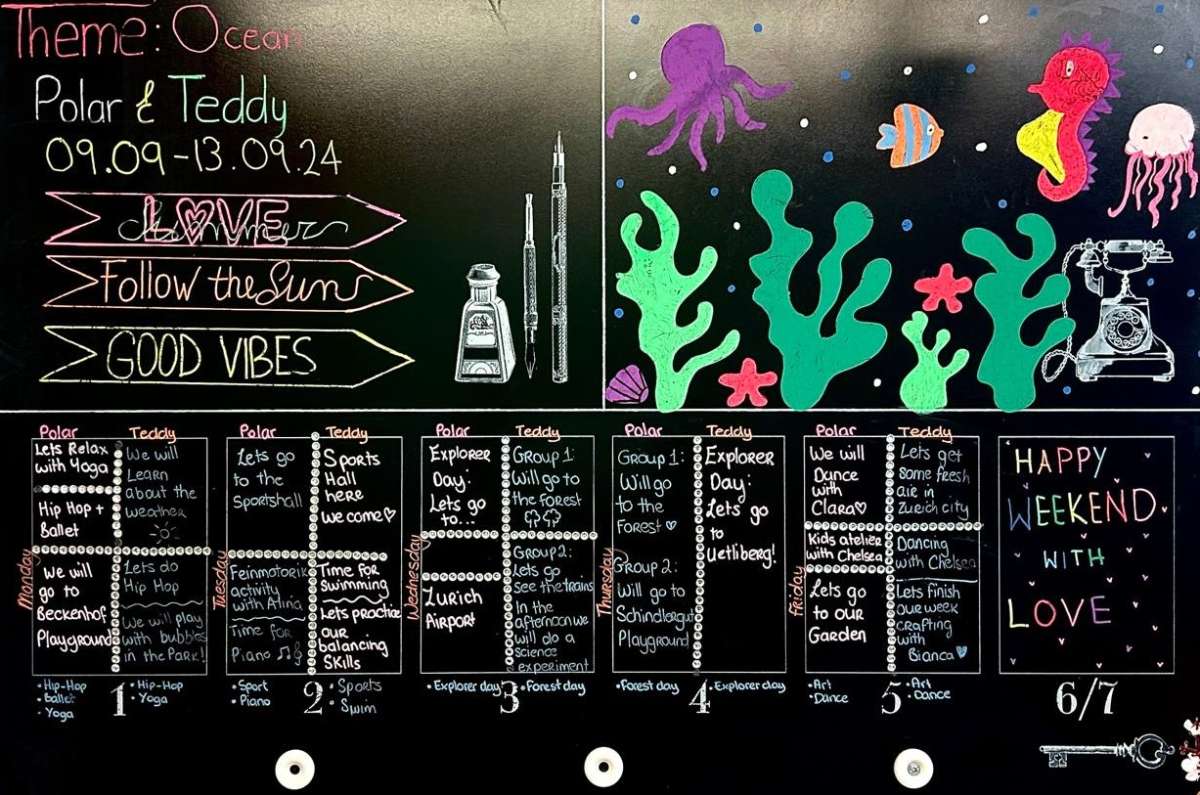 Theme: Ocean
Polar & Teddy
09.09-13.09.24
LOVE
Summer
Follow the Sun
GOOD VIBES
Polar
Teddy
Monday
Lets Relax
with Yoga
Hip Hop +
Ballet
We will
go to
Beckenhof
Playground
We will
Learn
about the
weather
Lets do
Hip Hop
We will play
with bubbles
in the Park!
• Hip-Hop
• Ballet
• Yoga
1
• Hip-Hop
• Yoga
Polar
Teddy
Tuesday
Lets go
to the
Sportshall
Feinmotorik
activity
with Alina
Time for
Piano
Sports
Hall
here
we come
Time for
Swimming
Lets practice
our
balancing
Skills
• Sport
• Piano
2
• Sports
• Swim
Polar
Teddy
Wednesday
Explorer
Day:
Lets go
to...
Zurich
Airport
Group 1:
Will go to
the Forest
Group2:
Lets go
see the trains
In the
afternoon we
will do a
science
experiment
• Explorer day
3
• Forest day
Polar
Teddy
Thursday
Group 1:
Will go
to the
Forest
Group 2:
Will go to
Schindlergut
Playground
Explorer
Day:
Lets' go
to
Uetliberg!
• Forest day
4
• Explorer day
Polar
Teddy
Friday
We will
Dance
with
Clara
Kids atelier
with Chelsea
Lets go
to our
Garden
Lets get
some fresh
air in
Zurich city
Dancing
with Chelsea
Lets finish
our week
crafting
with
Bianca
• Art
• Dance
5
• Art
• Dance
HAPPY
WEEKEND
WITH
LOVE
6/7